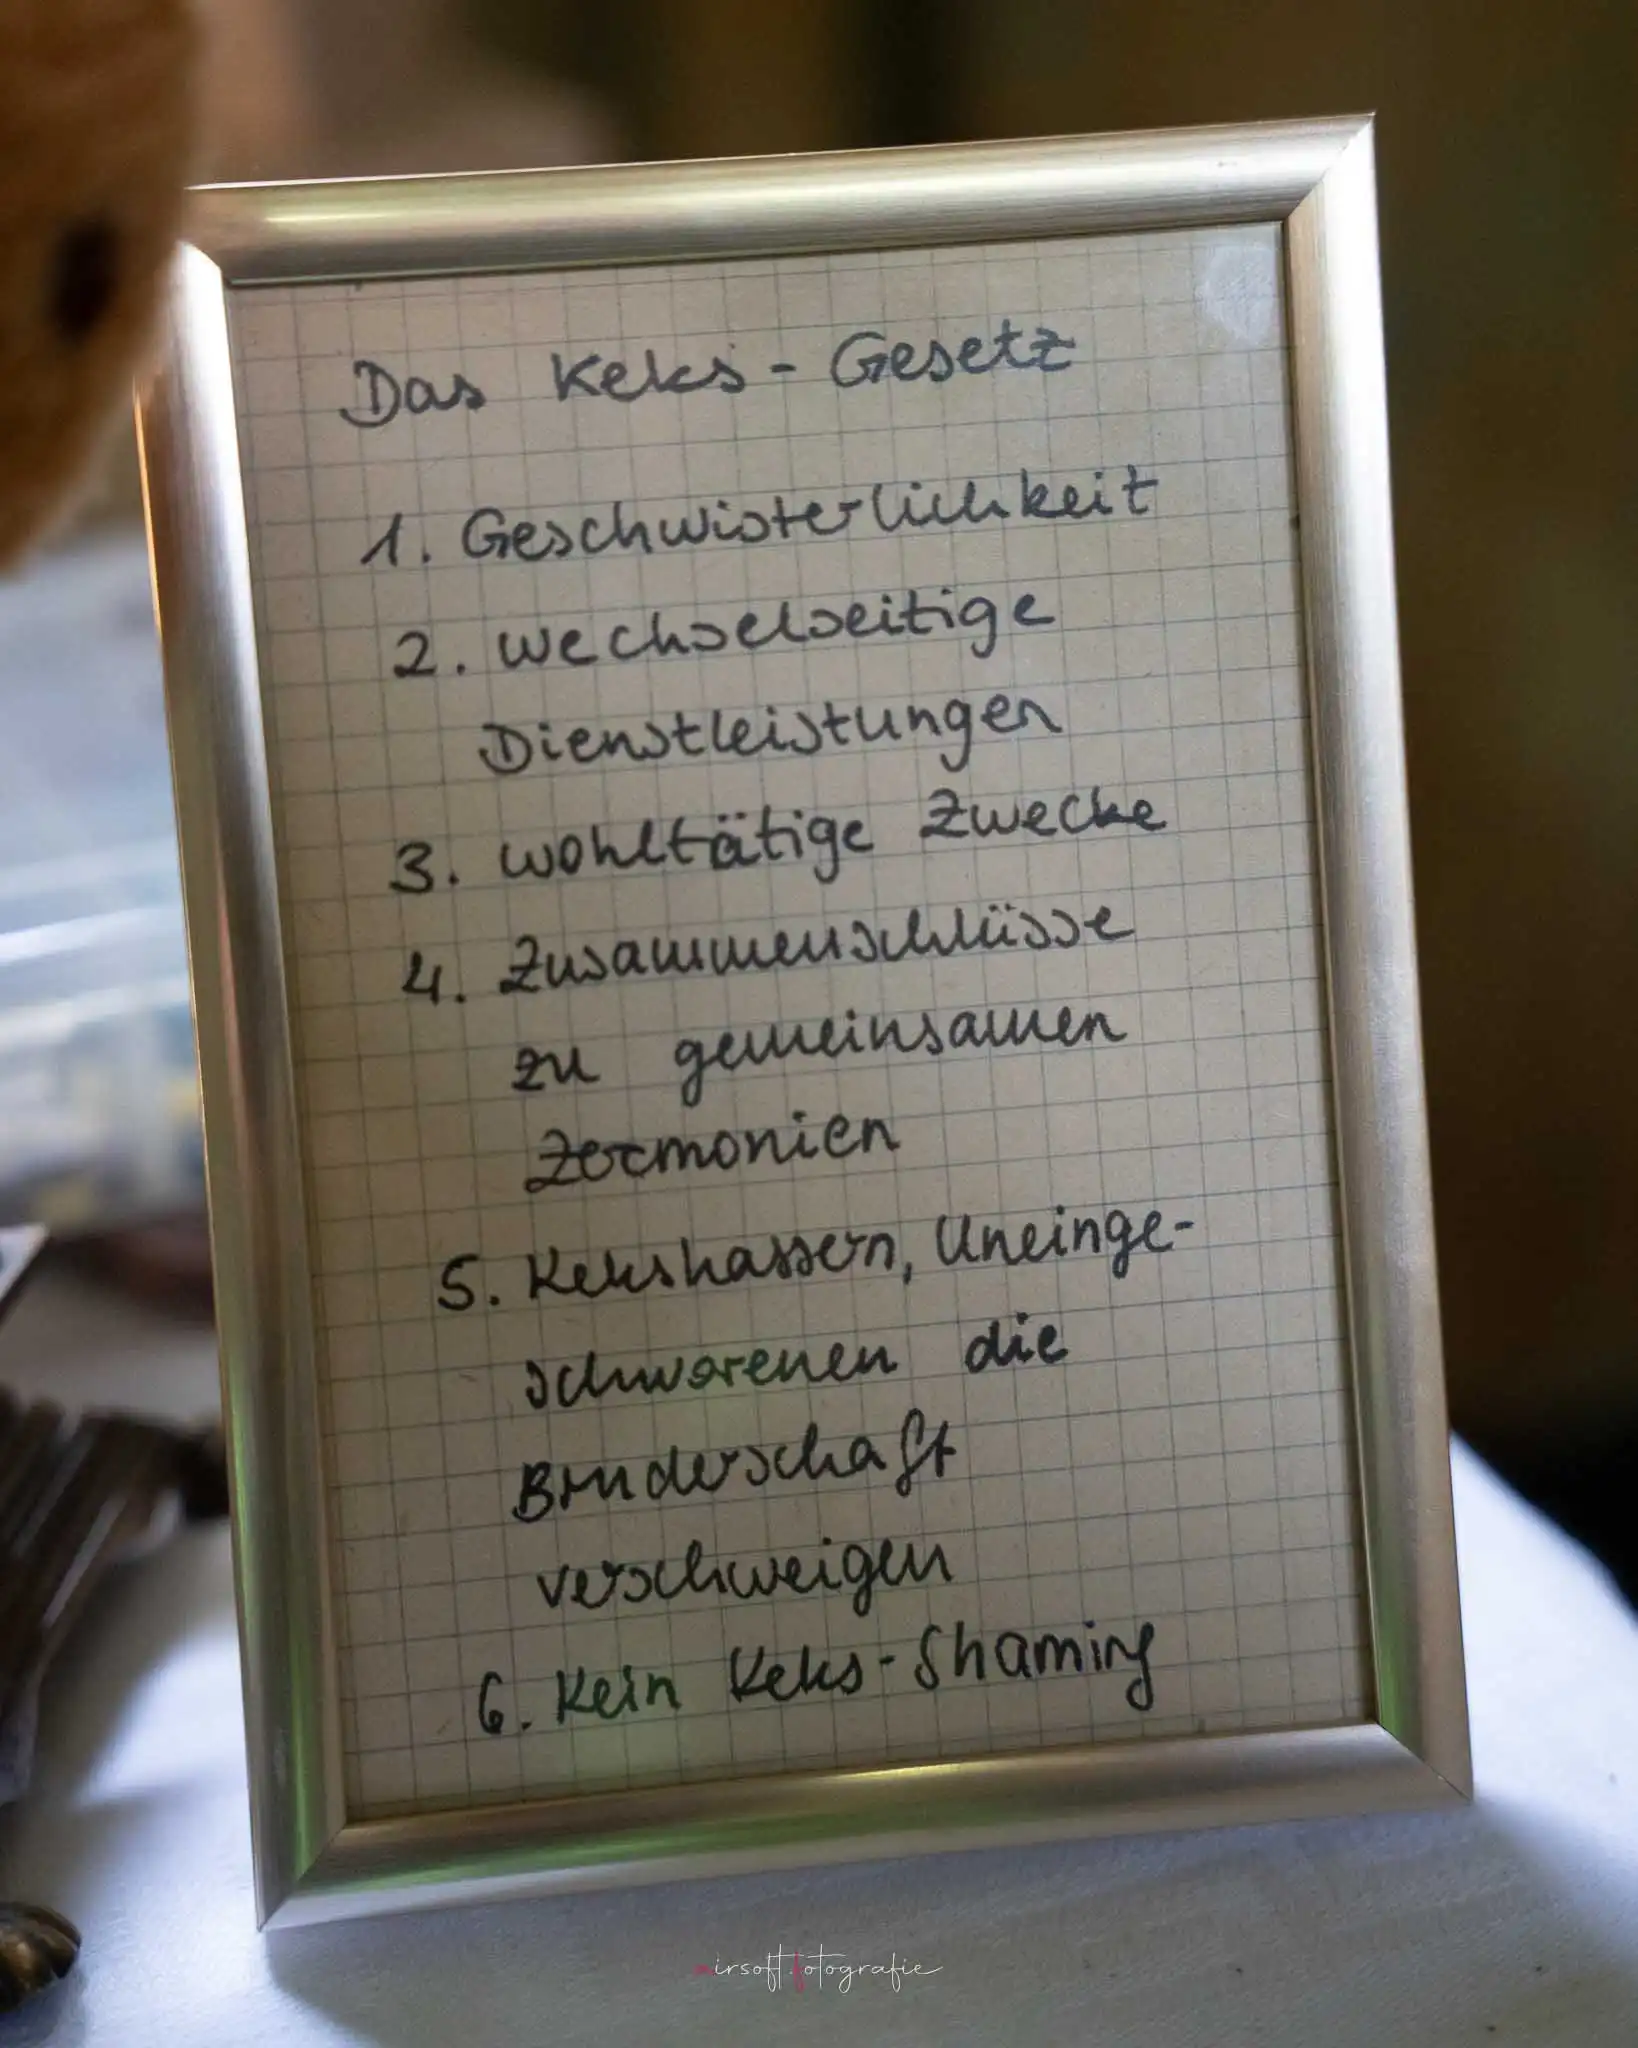 Das Keks-Gesetz
1. Geschwisterlichkeit
2. wechselseitige
Dienstleistungen
3. wohltätige Zwecke
4. Zusammenschlüsse
zu gemeinsamen
Zermonien
5. Kekshassern, Uneinge-
schworenen die
Bruderschaft
verschweigen
6. Kein Keks-Shaming
airsoft.fotografie